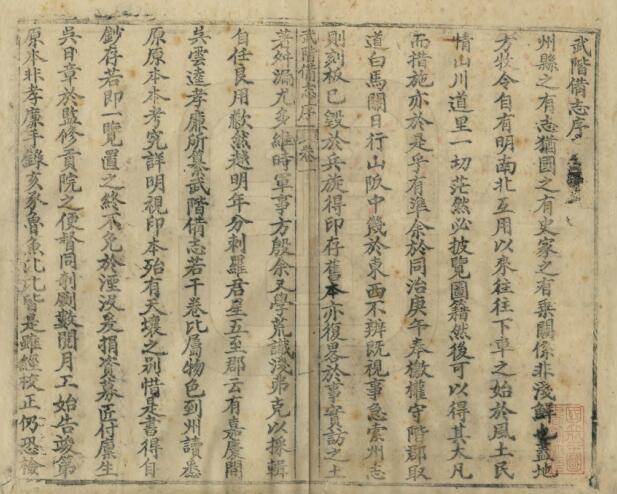 武階備志序
州縣之有志猶國之有史家之有乘關係非淺鮮也蓋地
方牧令自有明南北互用以來往往下車之始於風土民
情山川道里一切茫然必披覽圖籍然後可以得其大凡
而措施亦於是乎有準余於同治庚午奉檄權守階郡取
道白馬關日行山阪中幾於東西不辨既視事急索州志
則刻板已毀於兵旋得印存舊本亦復畧於事實訪之土
武階備志序 卷一
著舛漏尤多維時軍事方殷余又學荒識淺弗克以採輯
自任良用歉然越明年分刺羅君星五至郡云有嘉慶間
吳雲逵孝廉所纂武階備志若干卷比屬物色到州讀悉
原原本本考究詳明視印本殆有天壤之別惜是書得自
鈔存若卽一覽置之終不免於湮沒爰捐資募匠付廩生
吳日章於監修貢院之便督同剞劂數閱月工始告竣第
原本非孝廉手錄亥豕魯魚比比皆是雖經校正仍恐檢